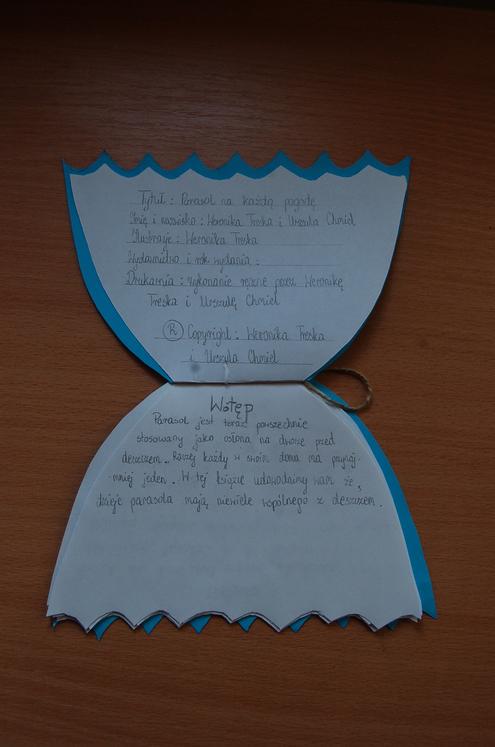 Tytuł : Parasol na każdą pogodę
Imię i nazwisko : Weronika Treska i Urszula Chmiel
Ilustracje : Weronika Treska
Wydawnictwo i rok wydania :
Drukarnia : wykonanie ręczne przez Weronikę
Treska i Urszulę Chmiel
R Copyright : Weronika Treska
i Urszula Chmiel
Wstęp
Parasol jest teraz powszechnie
stosowany jako osłona na dworze przed
deszczem. Raczej każdy w swoim domu ma przynaj-
mniej jeden. W tej książce udowodnimy wam że,
dzieje parasola mają niewiele wspólnego z deszczem.